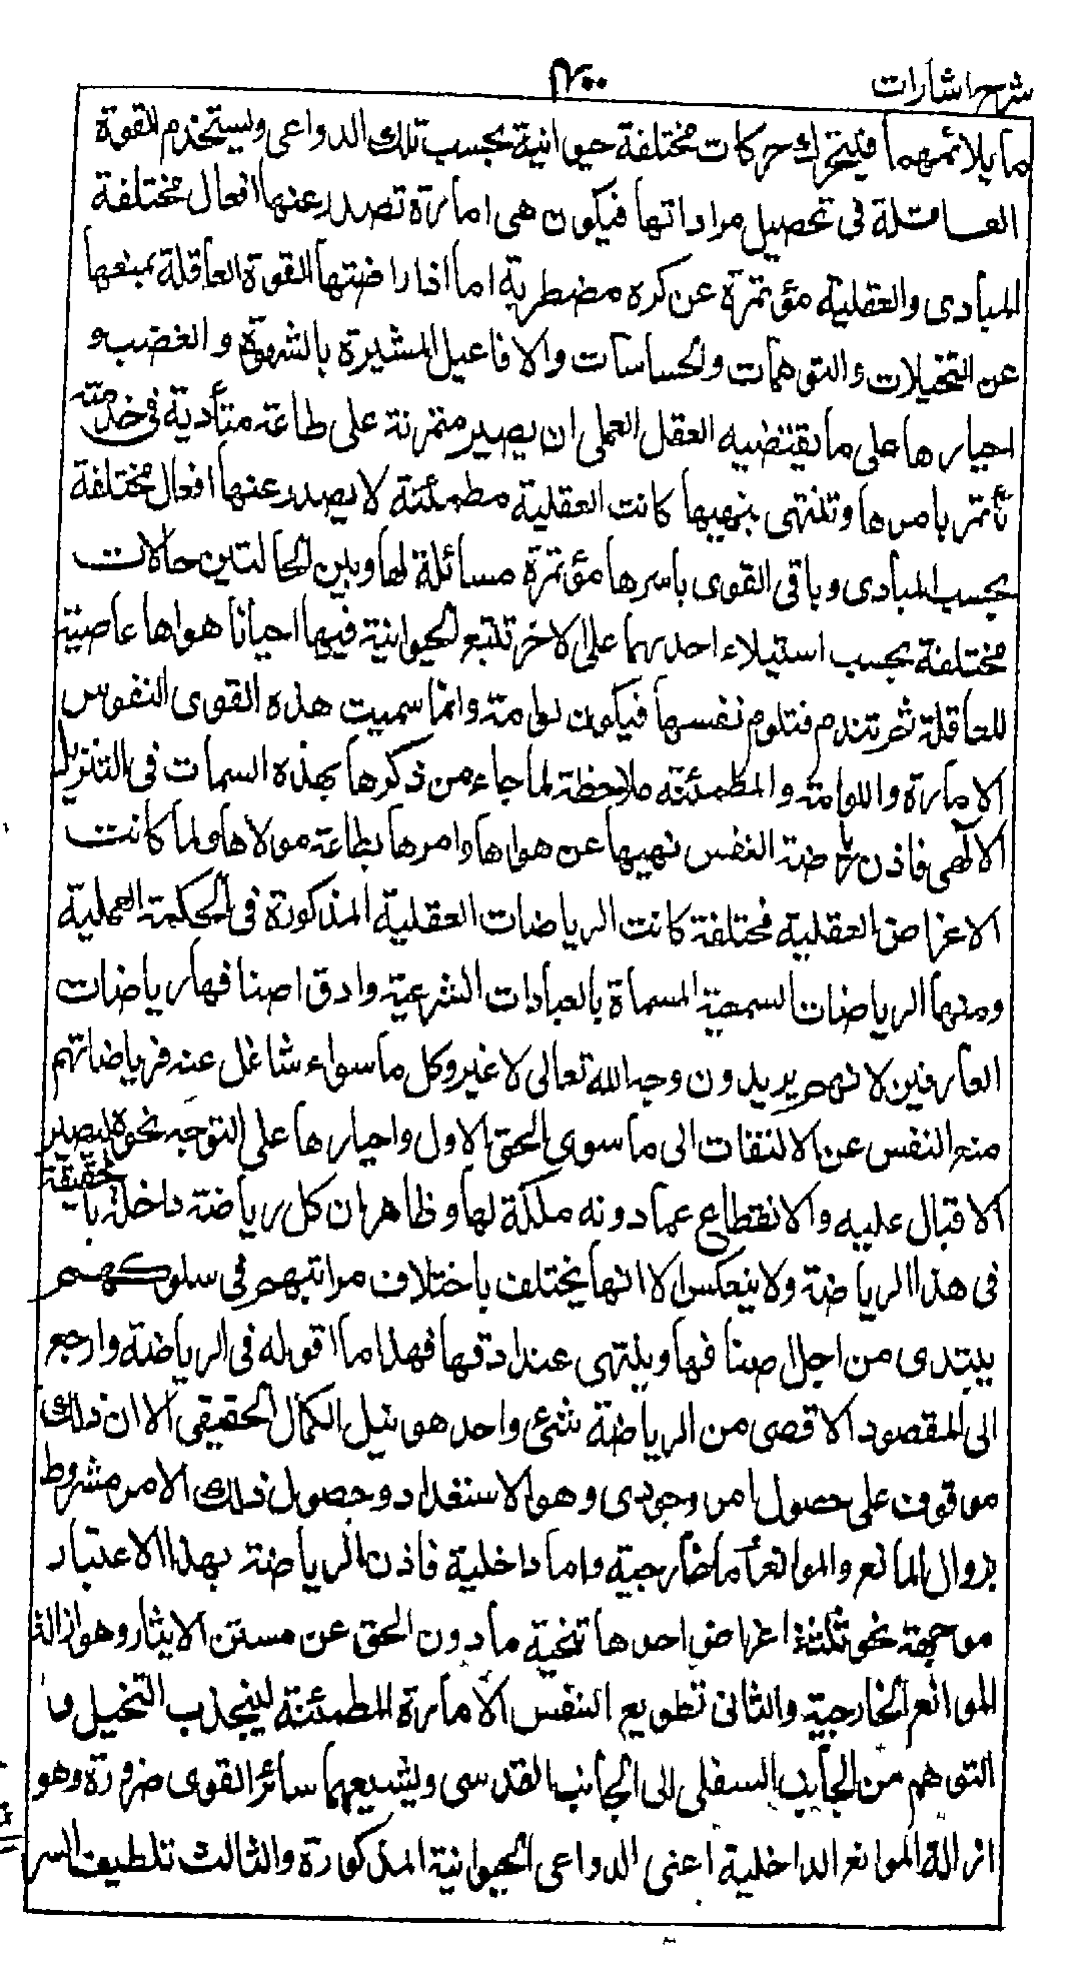 شرح اشارات
٣٠٠
ما يلائمهما فيتحرك حركات مختلفة حيوانية بحسب تلك الدواعى ويستخدم القوة
العاقلة فى تحصيل مراداتها فيكون هى امارة تصدر عنها افعال مختلفة
المبادى والعقلية مؤتمرة عن كره مضطربة اما اذا راضتها القوة العاقلة بمنعها
عن التخيلات والتوهمات والحساسات والافاعيل المشيرة بالشهوة والغضب و
اجبارها على ما يقتضيه العقل العملى ان يصير متمرنة على طاعة متأدية فى خدمته
تأتمر بامرها وتنتهى بنهيها كانت العقلية مطمئنة لا يصدر عنها افعال مختلفة
بحسب المبادى وباقى القوى باسرها مؤتمرة مسائلة لها وبين الحالتين حالات
مختلفة بحسب استيلاء احدىهما على الاخر تتبع الحيوانية فيها احيانا هواها عاصية
للعاقلة ثم تندم فتلوم نفسها فيكون لوامة وانما سميت هذه القوى النفوس
الامارة واللوامة والمطمئنة ملاحظة لما جاء من ذكرها بهذه السمات فى التنزيل
الالٓهى فاذن رياضة النفس نهيها عن هواها وامرها بطاعة مولاها ولما كانت
الاغراض العقلية مختلفة كانت الرياضات العقلية المذكورة فى الحكمة العملية
ومنها الرياضات السمعية المسماة بالعبادات الشرعية وادق اصنافها رياضات
العارفين لانهم يريدون وجه الله تعالى لا غير وكل ما سواه شاغل عنه فرياضاتهم
منع النفس عن الالتفات الى ما سوى الحق الاول واجبارها على التوجه نحوه ليصير
الاقبال عليه والانقطاع عما دونه ملكة لها وظاهر ان كل رياضة داخلة بالحقيقة
فى هذا الرياضة ولا ينعكس الا انها يختلف باختلاف مراتبهم فى سلوكهم
يبتدى من اجل اصنافها وينتهى عند ادقها فهذا ما اقوله فى الرياضة وارجع
الى المقصود الاقصى من الرياضة شئ واحد هو نيل الكمال الحقيقى الا ان ذلك
موقوف على حصول امر وجودى وهو الاستعداد وحصول ذلك الامر مشروط
بزوال المانع والموانع اما خارجية واما داخلية فاذن الرياضة بهذا الاعتبار
موجهة نحو ثلثة اغراض احدها تنحية ما دون الحق عن مستن الايثار وهو ازالة
الموانع الخارجية والثانى تطويع النفس الامارة للمطمئنة لينجذب التخيل و
التوهم من الجانب السفلى الى الجانب القدسى ويشيعهما سائر القوى ضرورة وهو
ازالة الموانع الداخلية اعنى الدواعى الحيوانية المذكورة والثالث تلطيف السر